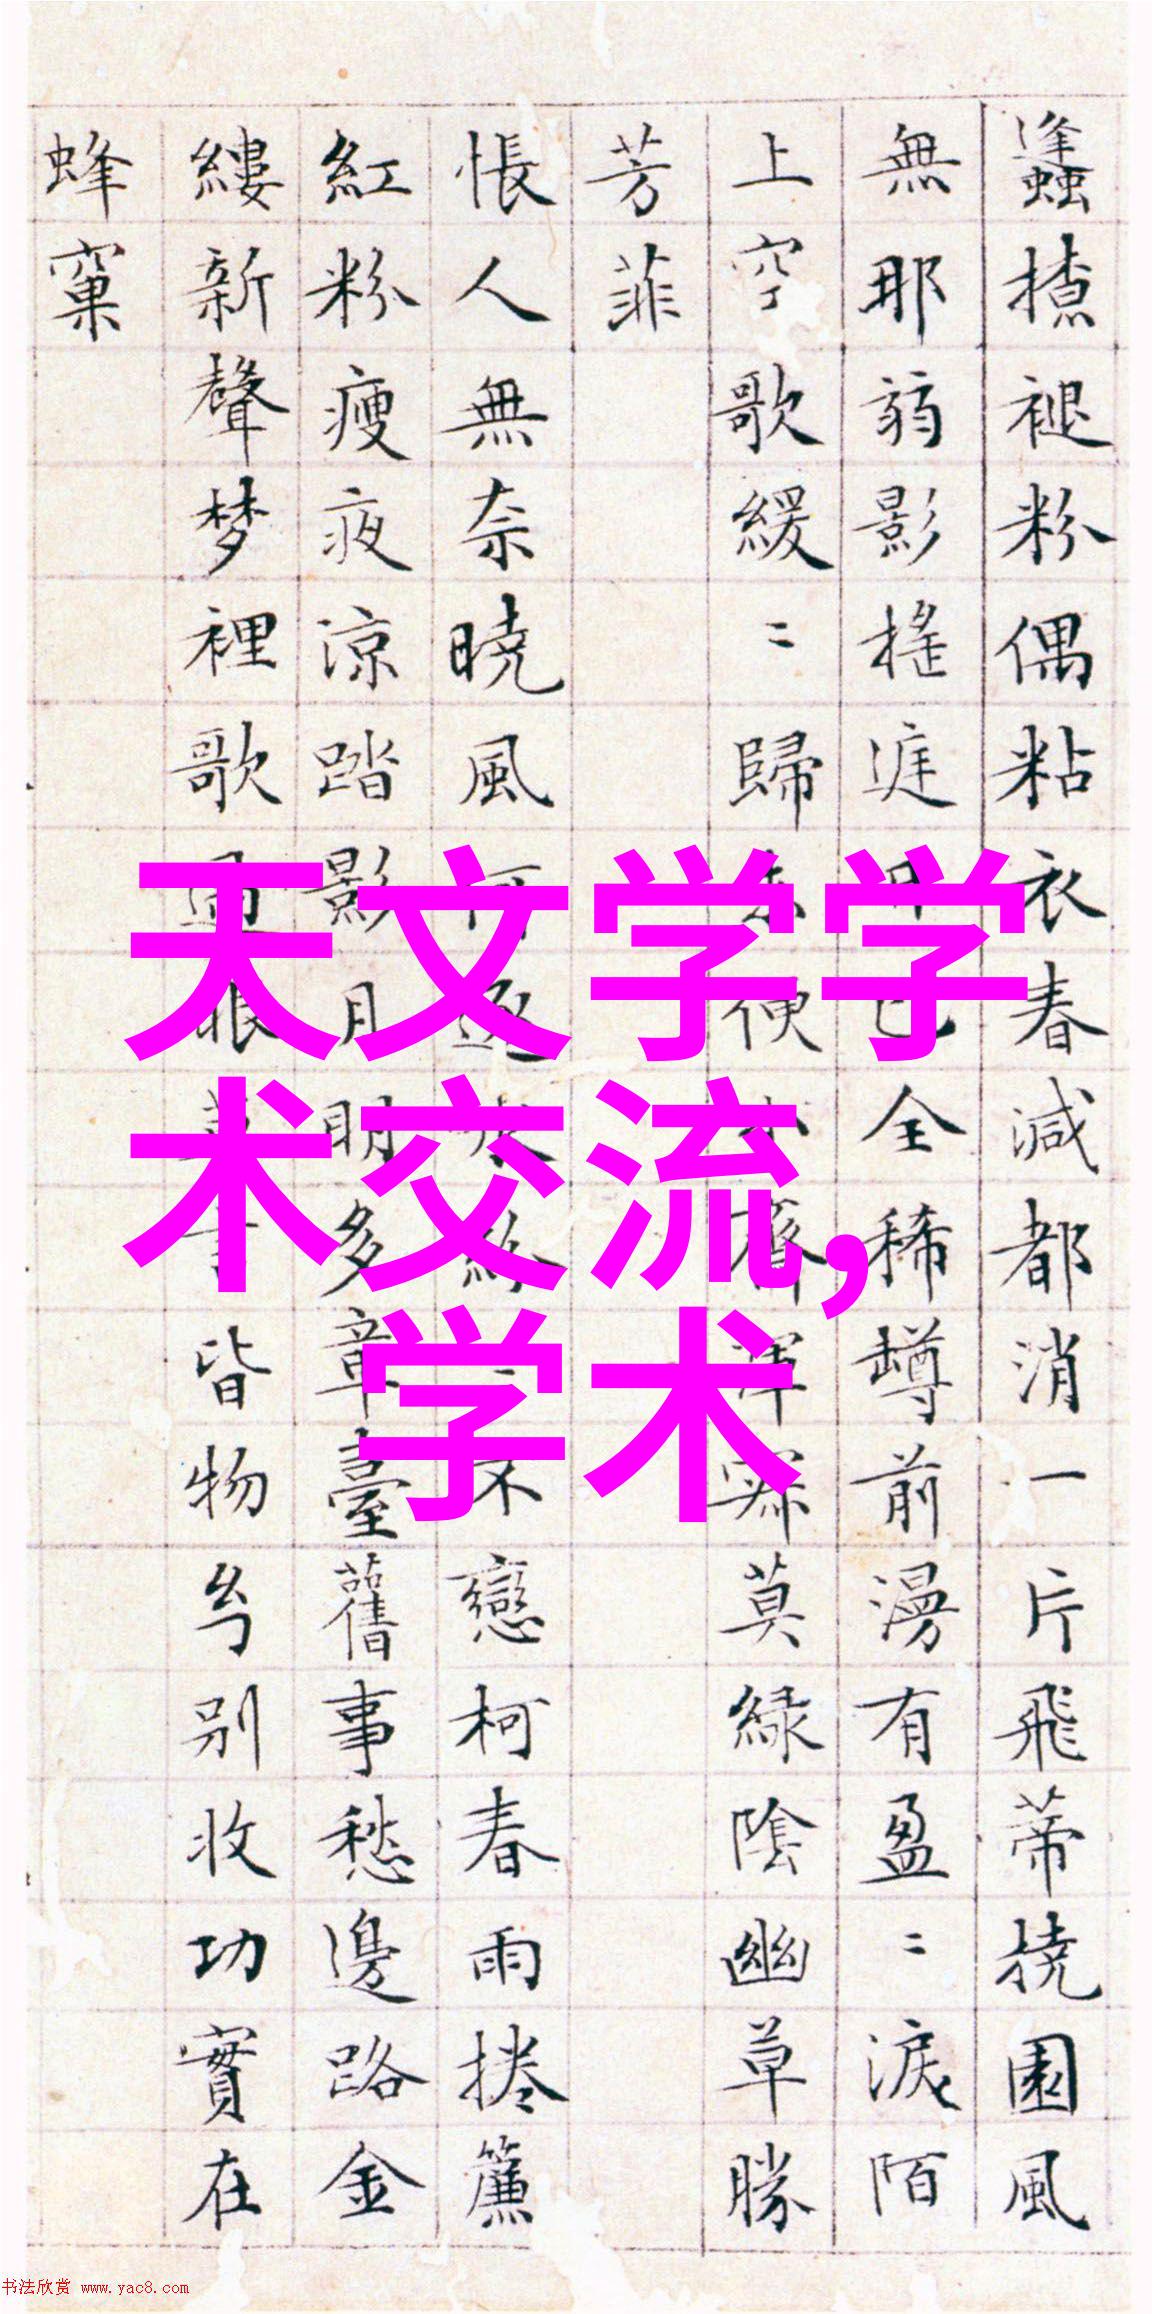 蠭褪粉偶粘衣春減都消一片飛蒂撓園風
無那弱影搖全稀前漫有盈〻淚陌
上空歌緩〻歸便齋渾莫緑陰幽草勝
芳菲
悵人無奈曉風不戀柯春雨捲簾
紅粉瘦夜涼踏影月明多章臺舊事愁邊路金
縷新聲梦裡歌眼皆物别收功實在
蜂窠
天文学学
术交流,
学术
书法欣赏 www.yac8.com